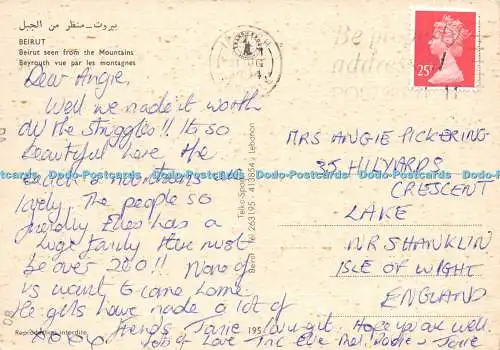 بيروت - منظر من الجبل
BEIRUT
Beirut seen from the Mountains
Beyrouth vue par les montagnes
Dear Angie,
Well we made it worth
all the struggles!! Its so
beautiful here the
& mountains are
lovely. The people so
friendly Eves has a
huge family there must
be over 200!! None of
us want to come home
girls have made a lot of
friends. Janie Hope you are well.
xoxo Lots of Love Eve Janie
Reproduction interdite
195
Telko-Sport
Beirut Tel: 263195 - 410864 - Lebanon
Be
address
25
MRS ANGIE PICKERING
35 HILYARDS
CRESCENT
LAKE
NR SHANKLIN
ISLE OF WIGHT
ENGLAND
Dado-Postcards Dado-Postcards Dado-Postcards Dado-Postcards